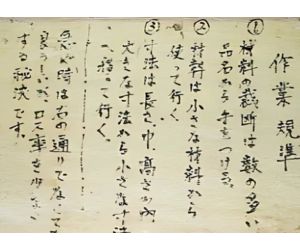 作業規準
① 材料の裁断は数の多い
品名から手をつける。
② 材料は小さな材料から
使って行く。
③ 寸法は長さ、巾、高さの内
大きな寸法から小さな寸法
へ移って行く。
急ぐ時は右の通りでなくても
良うしいが、ロス率を少なく
する秘決です。